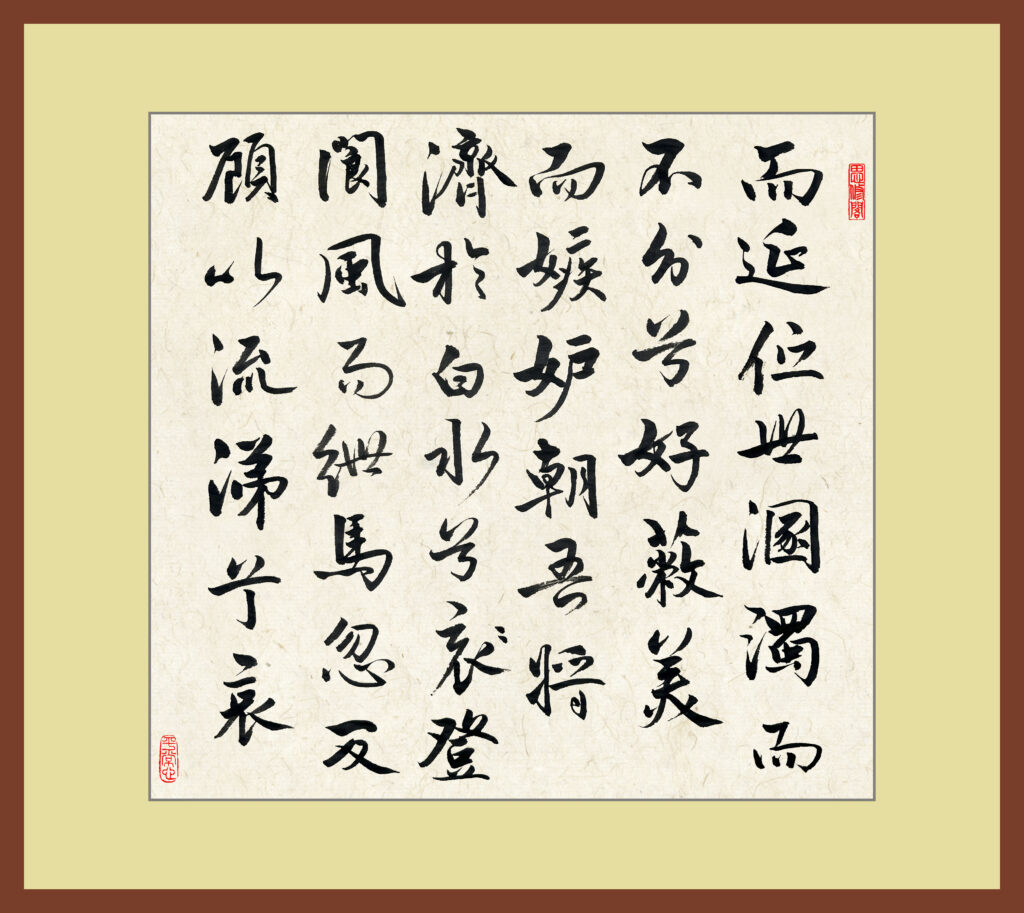 思修閣
而延佇世溷濁而
不分兮好蔽美
而嫉妒朝吾將
濟於白水兮哀登
閬風而紲馬忽反
顧以流涕兮哀
平常心